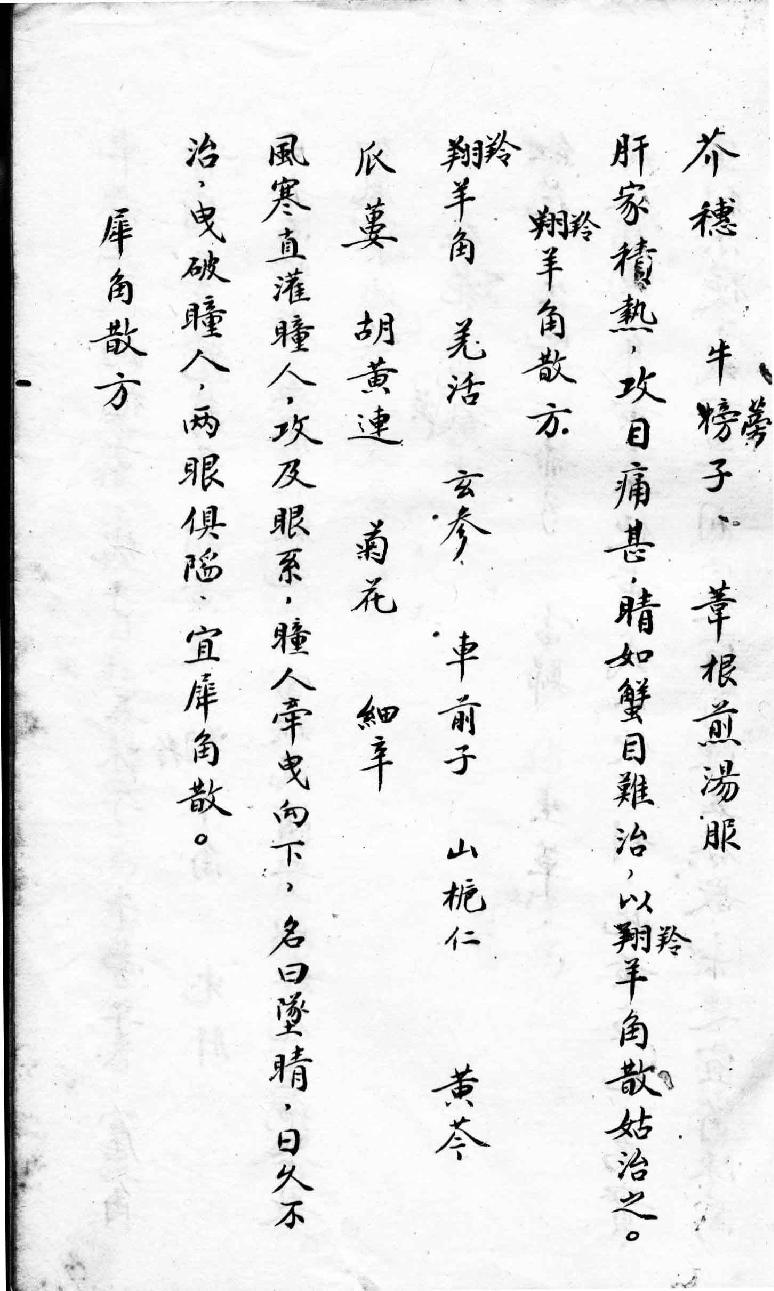 芥穗 牛蒡子、 葦根煎湯服
肝家積熱，攻目痛甚，睛如蟹目難治，以羚羊角散姑治之。
羚羊角散方.
羚羊角 羌活 玄參 車前子 山梔仁 黄芩
瓜蔞 胡黄連 菊花 細辛
風寒直灌瞳人，攻及眼系，瞳人牽曳向下，名曰墜睛，日久不
治，曳破瞳人，两眼俱陷、宜犀角散。
犀角散方